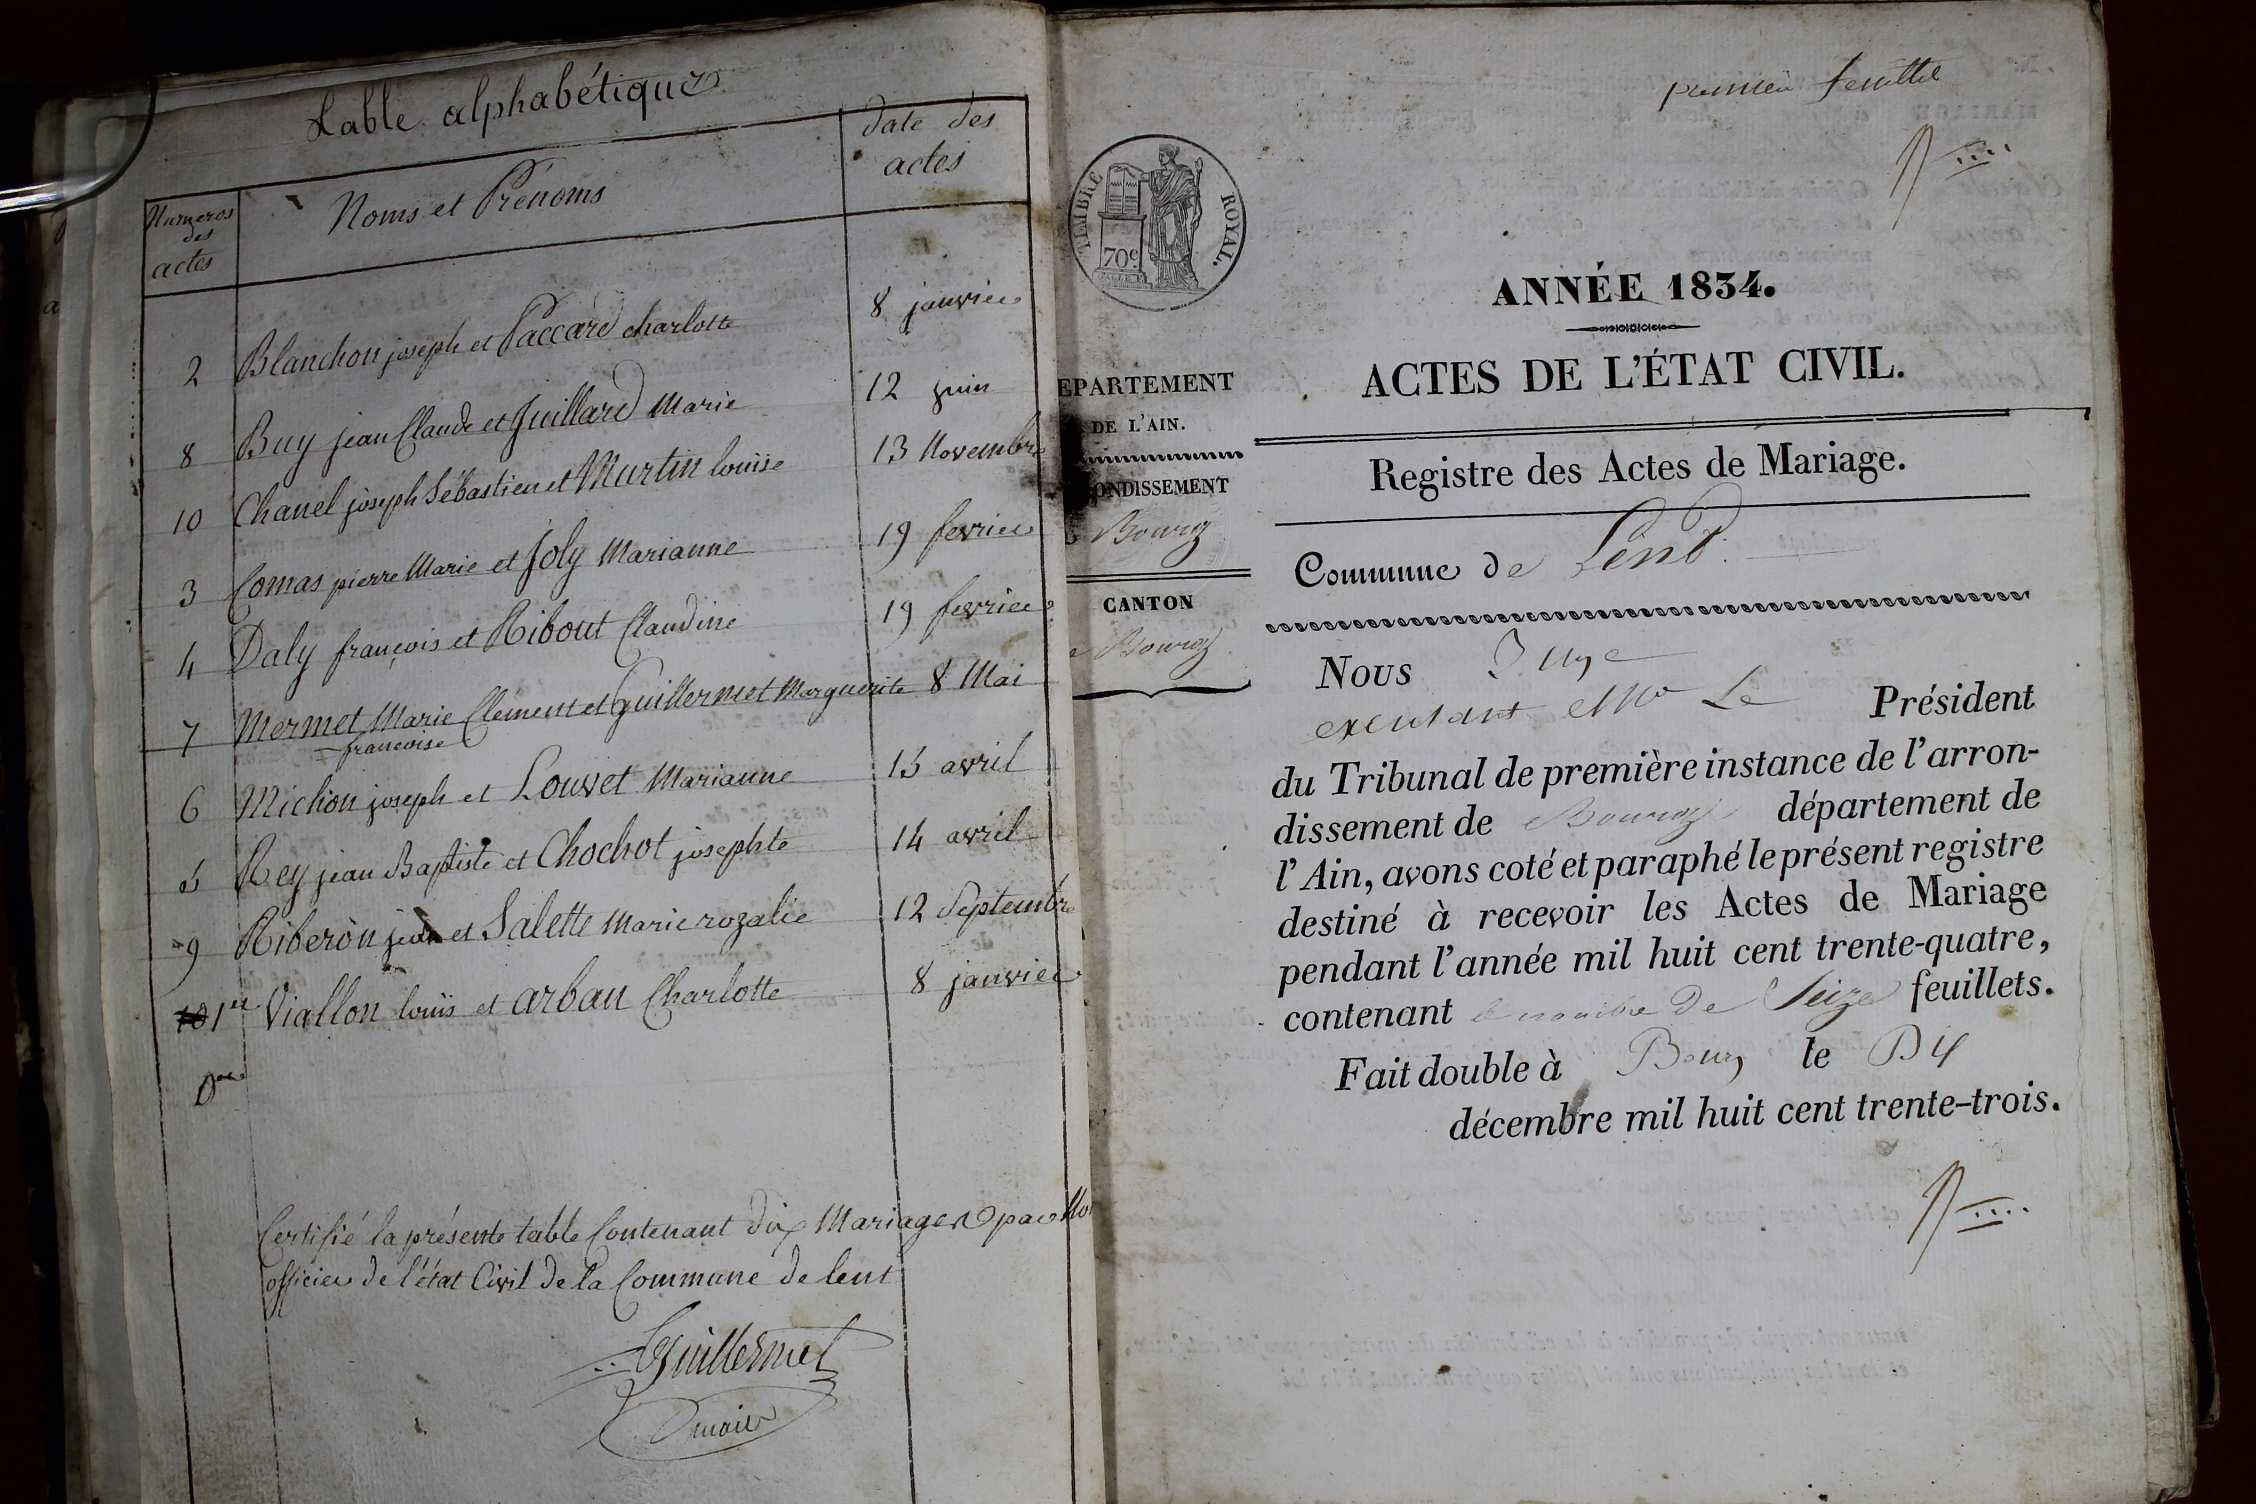 Table alphabétique
Numeros des actes
Noms et Prénoms
date des actes
2 Blanchon joseph et Paccard charlotte 8 janvier
8 Buy jean Claude et Juillard Marie 12 juin
10 Chanel joseph Sébastien et Martin louise 13 Novembre
3 Comas pierre Marie et Joly Marianne 19 fevrier
4 Daly françois et Ribout Claudine 19 fevrier
7 Mermet Marie Clément et Guillermet Marguerite 8 Mai
francoise
6 Michon joseph et Louvet Marianne 15 avril
5 Rey jean Baptiste et Chochot josephte 14 avril
9 Riberon jean et Salette Marie rozalie 12 Septembre
1er Viallon louis et arban Charlotte 8 janvier
Certifié la présente table Contenant dix Mariages par
officier de l'état Civil de la Commune de lent
Guillermet
premier feuillet
TIMBRE ROYAL.
70c
ANNÉE 1834.
ACTES DE L'ÉTAT CIVIL.
EPARTEMENT
DE L'AIN.
ONDISSEMENT
Bourg
CANTON
Bourg
Registre des Actes de Mariage.
Commune de Lent
Nous Juge
exerçant Le Président
du Tribunal de première instance de l'arron-
dissement de Bourg département de
l'Ain, avons coté et paraphé le présent registre
destiné à recevoir les Actes de Mariage
pendant l'année mil huit cent trente-quatre,
contenant le nombre de Seize feuillets.
Fait double à Bourg le
décembre mil huit cent trente-trois.